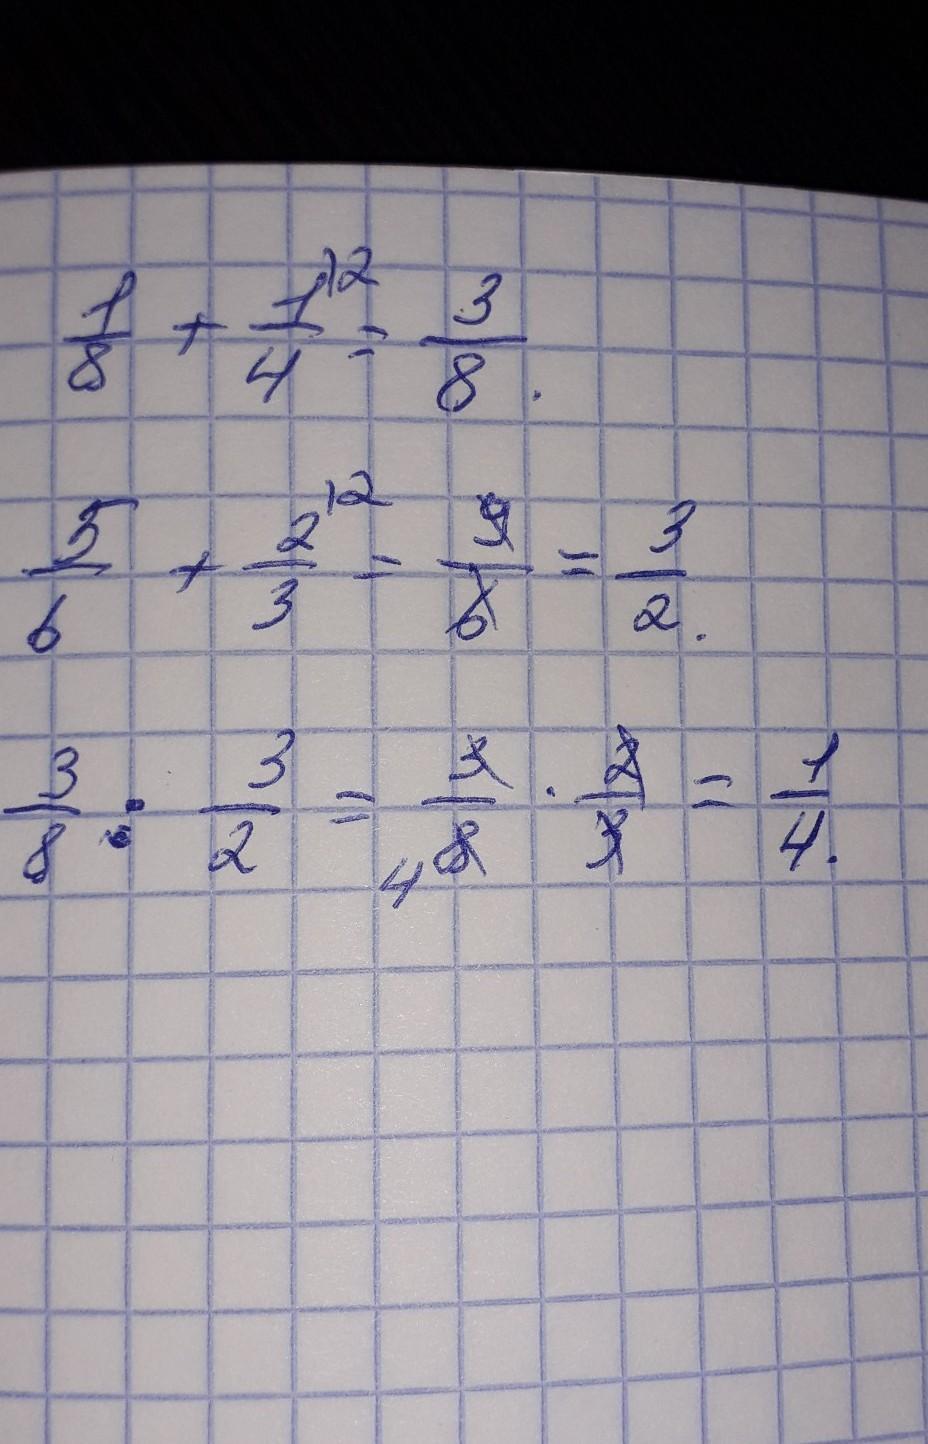 1/8 + 1/4 )2 = 3/8.
5/6 + 2/3 )2 = 9/6 = 3/2.
3/8 : 3/2 = 3/8 4 · 2/3 = 1/4.